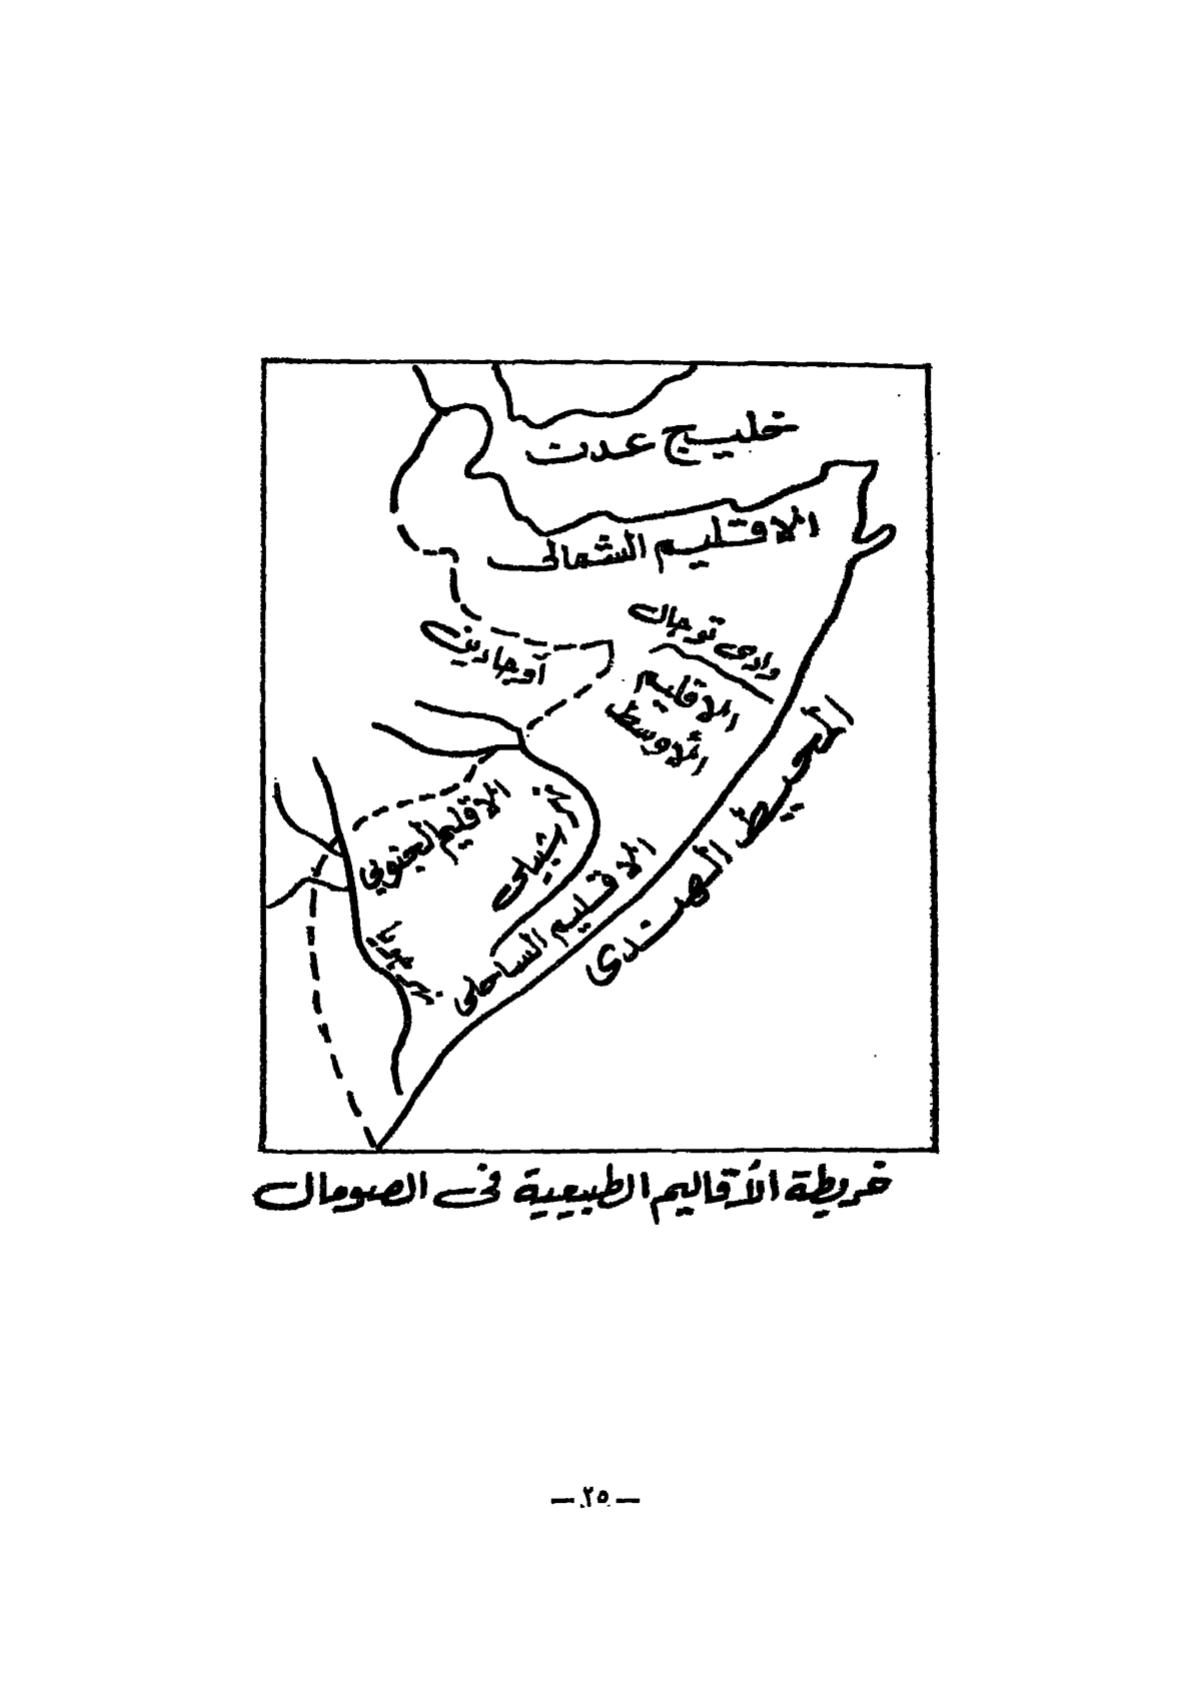 خليج عدن
الاقليم الشمالى
وادى توجال
أوجادين
الاقليم
الأوسط
المحيط الهندى
الاقليم الجنوبي
نهر شبيلى
الاقليم الساحلى
نهر جوبا
خريطة الأقاليم الطبيعية فى الصومال
— ٢٥ —